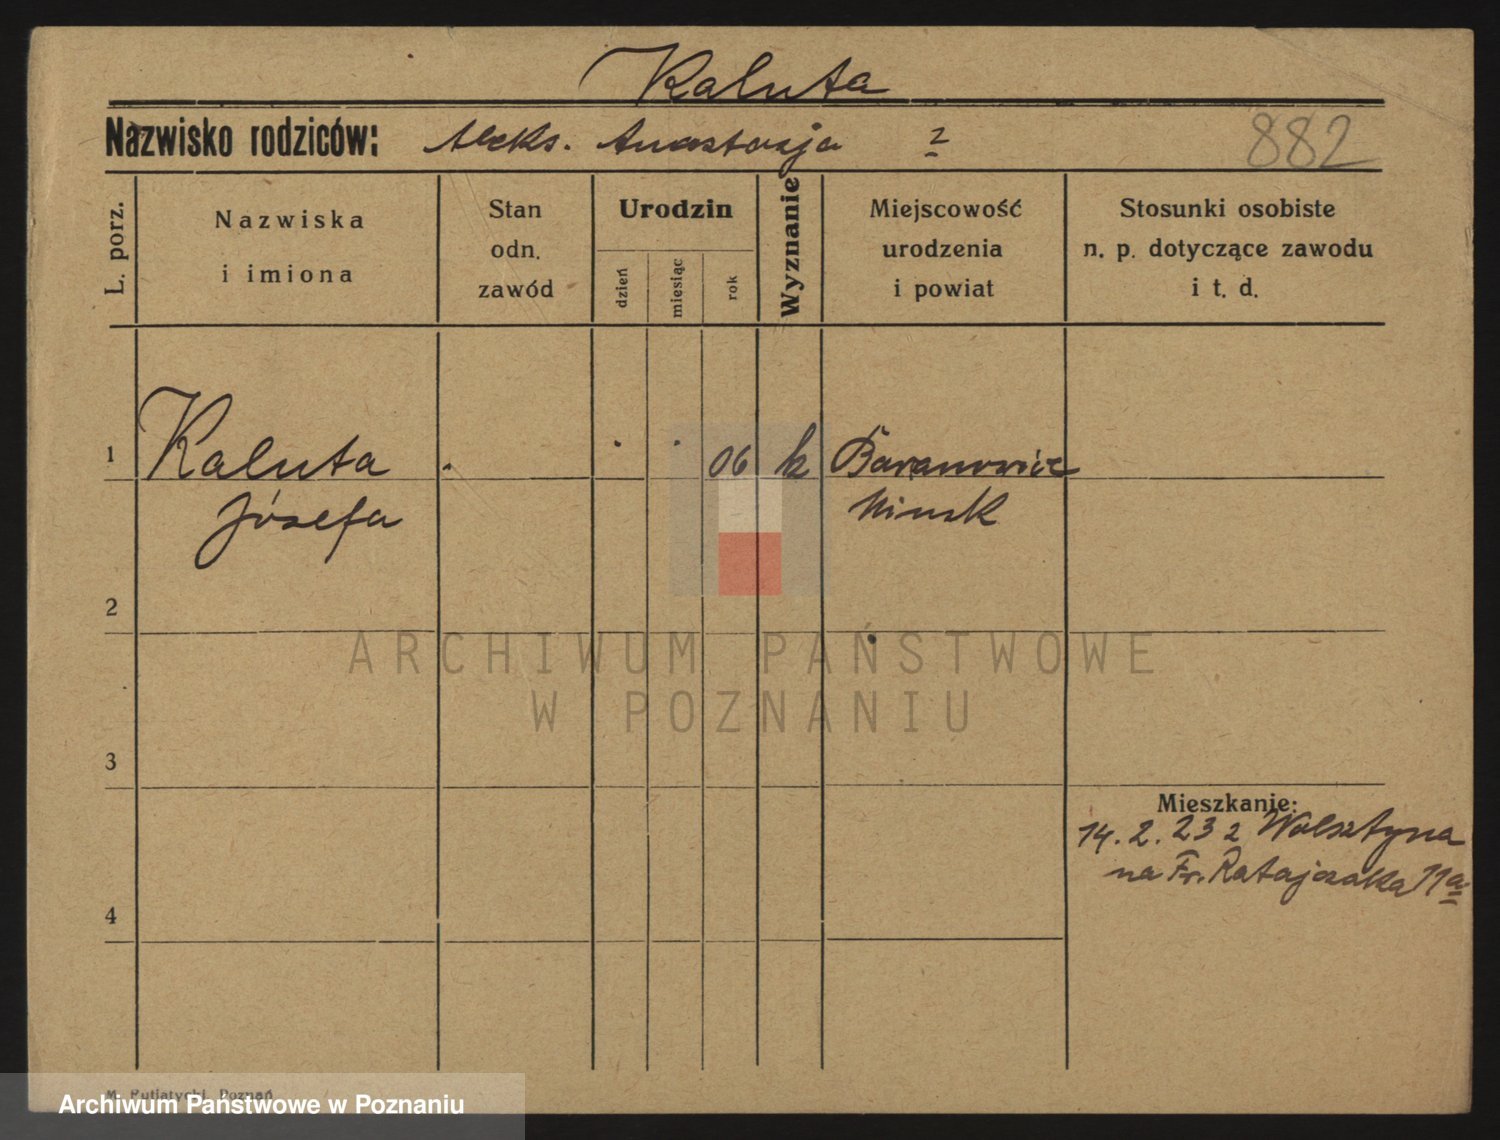 Kaluta
Nazwisko rodziców: Aleks. Anastazja z
882
L. porz.
Nazwiska
i imiona
Stan
odn.
zawód
Urodzin
dzień
miesiąc
rok
Wyznanie
Miejscowość
urodzenia
i powiat
Stosunki osobiste
n. p. dotyczące zawodu
i t. d.
1 Kaluta . . . 06 k Baranowice
Józefa Minsk
2
ARCHIWUM PAŃSTWOWE
W POZNANIU
3
Mieszkanie:
14. 2. 23 z Wolsztyna
na Fr. Ratajczaka 11a
4
M. Putiatycki, Poznań
Archiwum Państwowe w Poznaniu